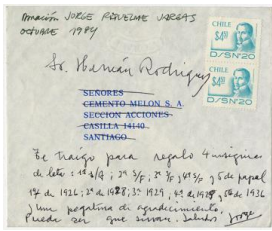 Donación JORGE RIQUELME VARGAS
OCTUBRE 1984
CHILE
$4.50
D/S Nº 20
CHILE
$4.50
D/S Nº 20
Sr. Hernán Rodríguez
SEÑORES
CEMENTO MELON S. A.
SECCION ACCIONES
CASILLA 14140
SANTIAGO
Te traigo para regalo 4 insignias
de
y 5 de papal
1º de 1926; 2º de 1928; 3º 1929, 4º de y 5º de 1936
y una pegatina de agradecimiento.
Puede ser que sirvan. Saludos Jorge